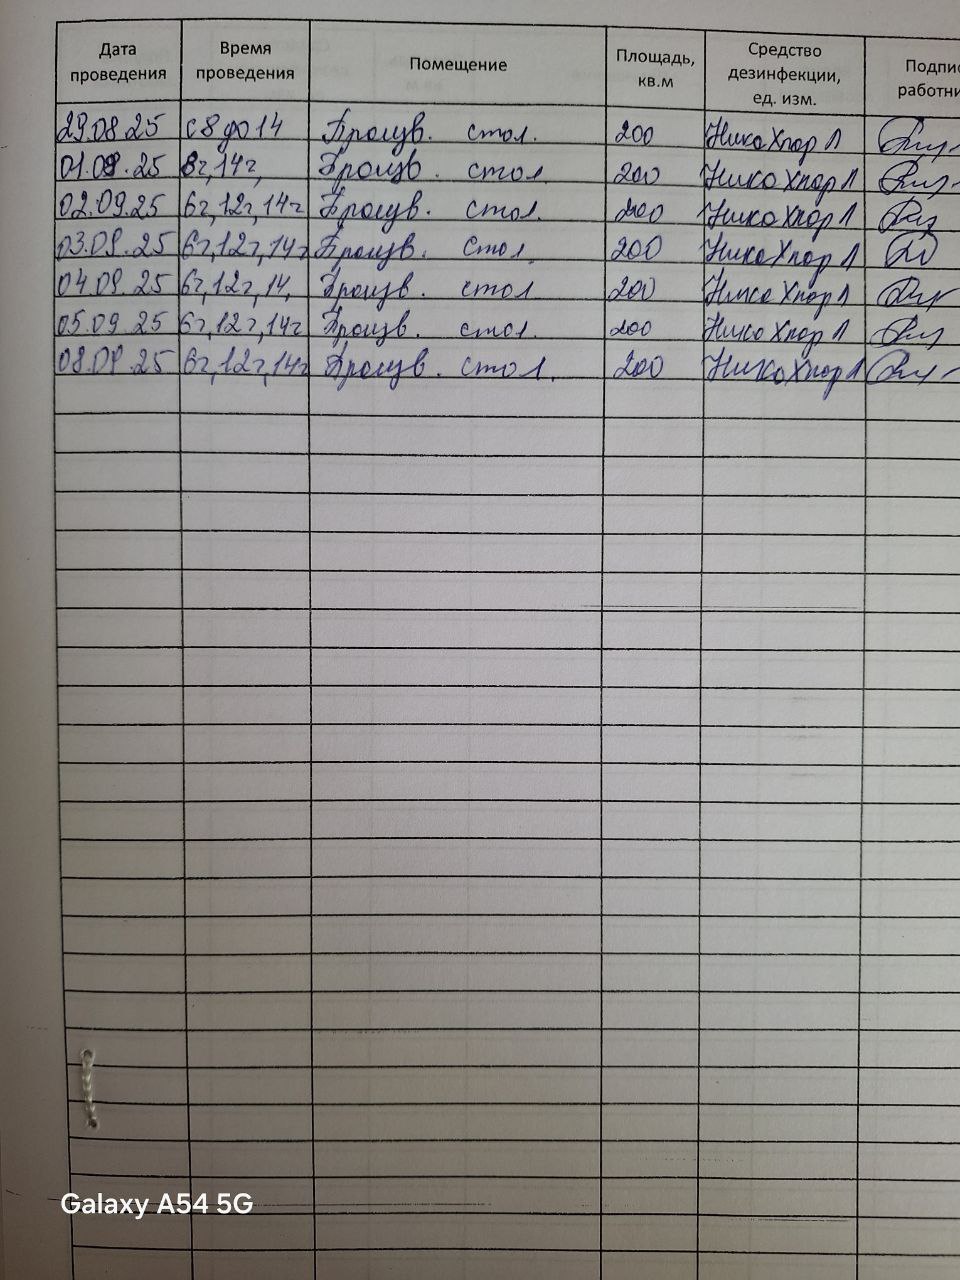 Дата проведения Время проведения Помещение Площадь, кв.м Средство дезинфекции, ед. изм. Подпис работни
29.08.25 с 8 до 14 Произв. стол. 200 НикаХлор Л
01.09.25 8ч,14ч, Произв. стол. 200 Ника Хлор Л
02.09.25 6ч,12ч,14ч Произв. стол. 200 Ника Хлор Л
03.09.25 6ч,12ч,14ч Произв. стол. 200 НикаХлор Л
04.09.25 6ч,12ч,14. Произв. стол 200 Ника Хлор Л
05.09.25 6ч,12ч,14ч Произв. стол. 200 Ника Хлор Л
08.09.25 6ч,12ч,14ч Произв. стол. 200 НикаХлор Л
Galaxy A54 5G